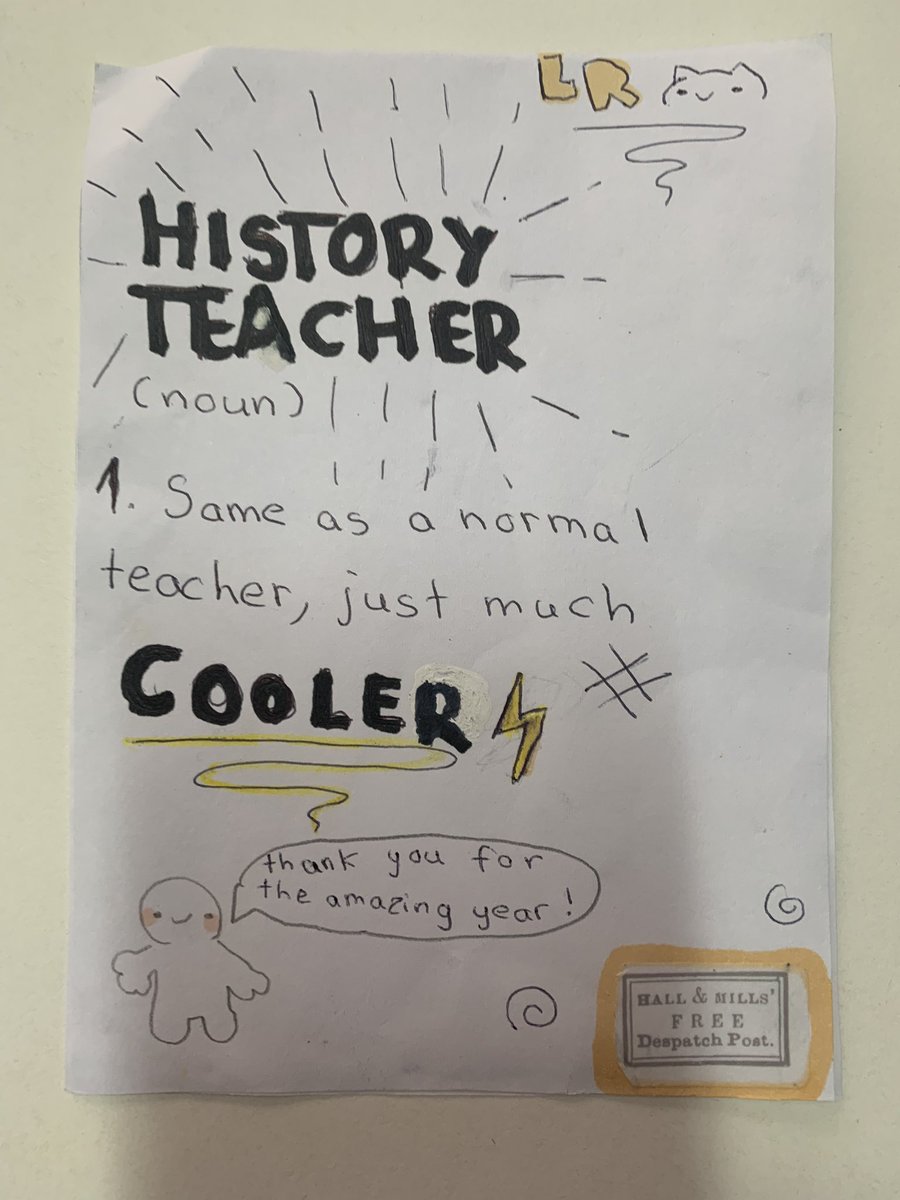 LR
HISTORY
TEACHER
(noun)
1. Same as a normal
teacher, just much
COOLER
thank you for
the amazing year!
HALL & MILLS'
FREE
Despatch Post.